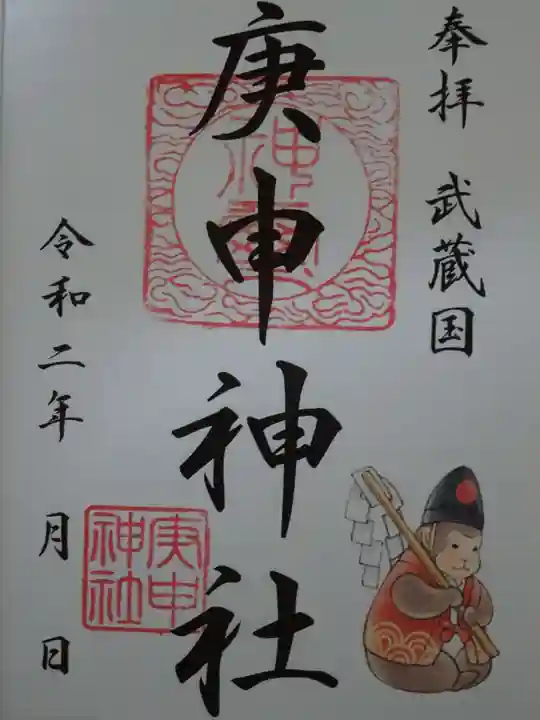 奉拝 武蔵国
庚申神社
神璽
庚申
神社
令和二年 月 日